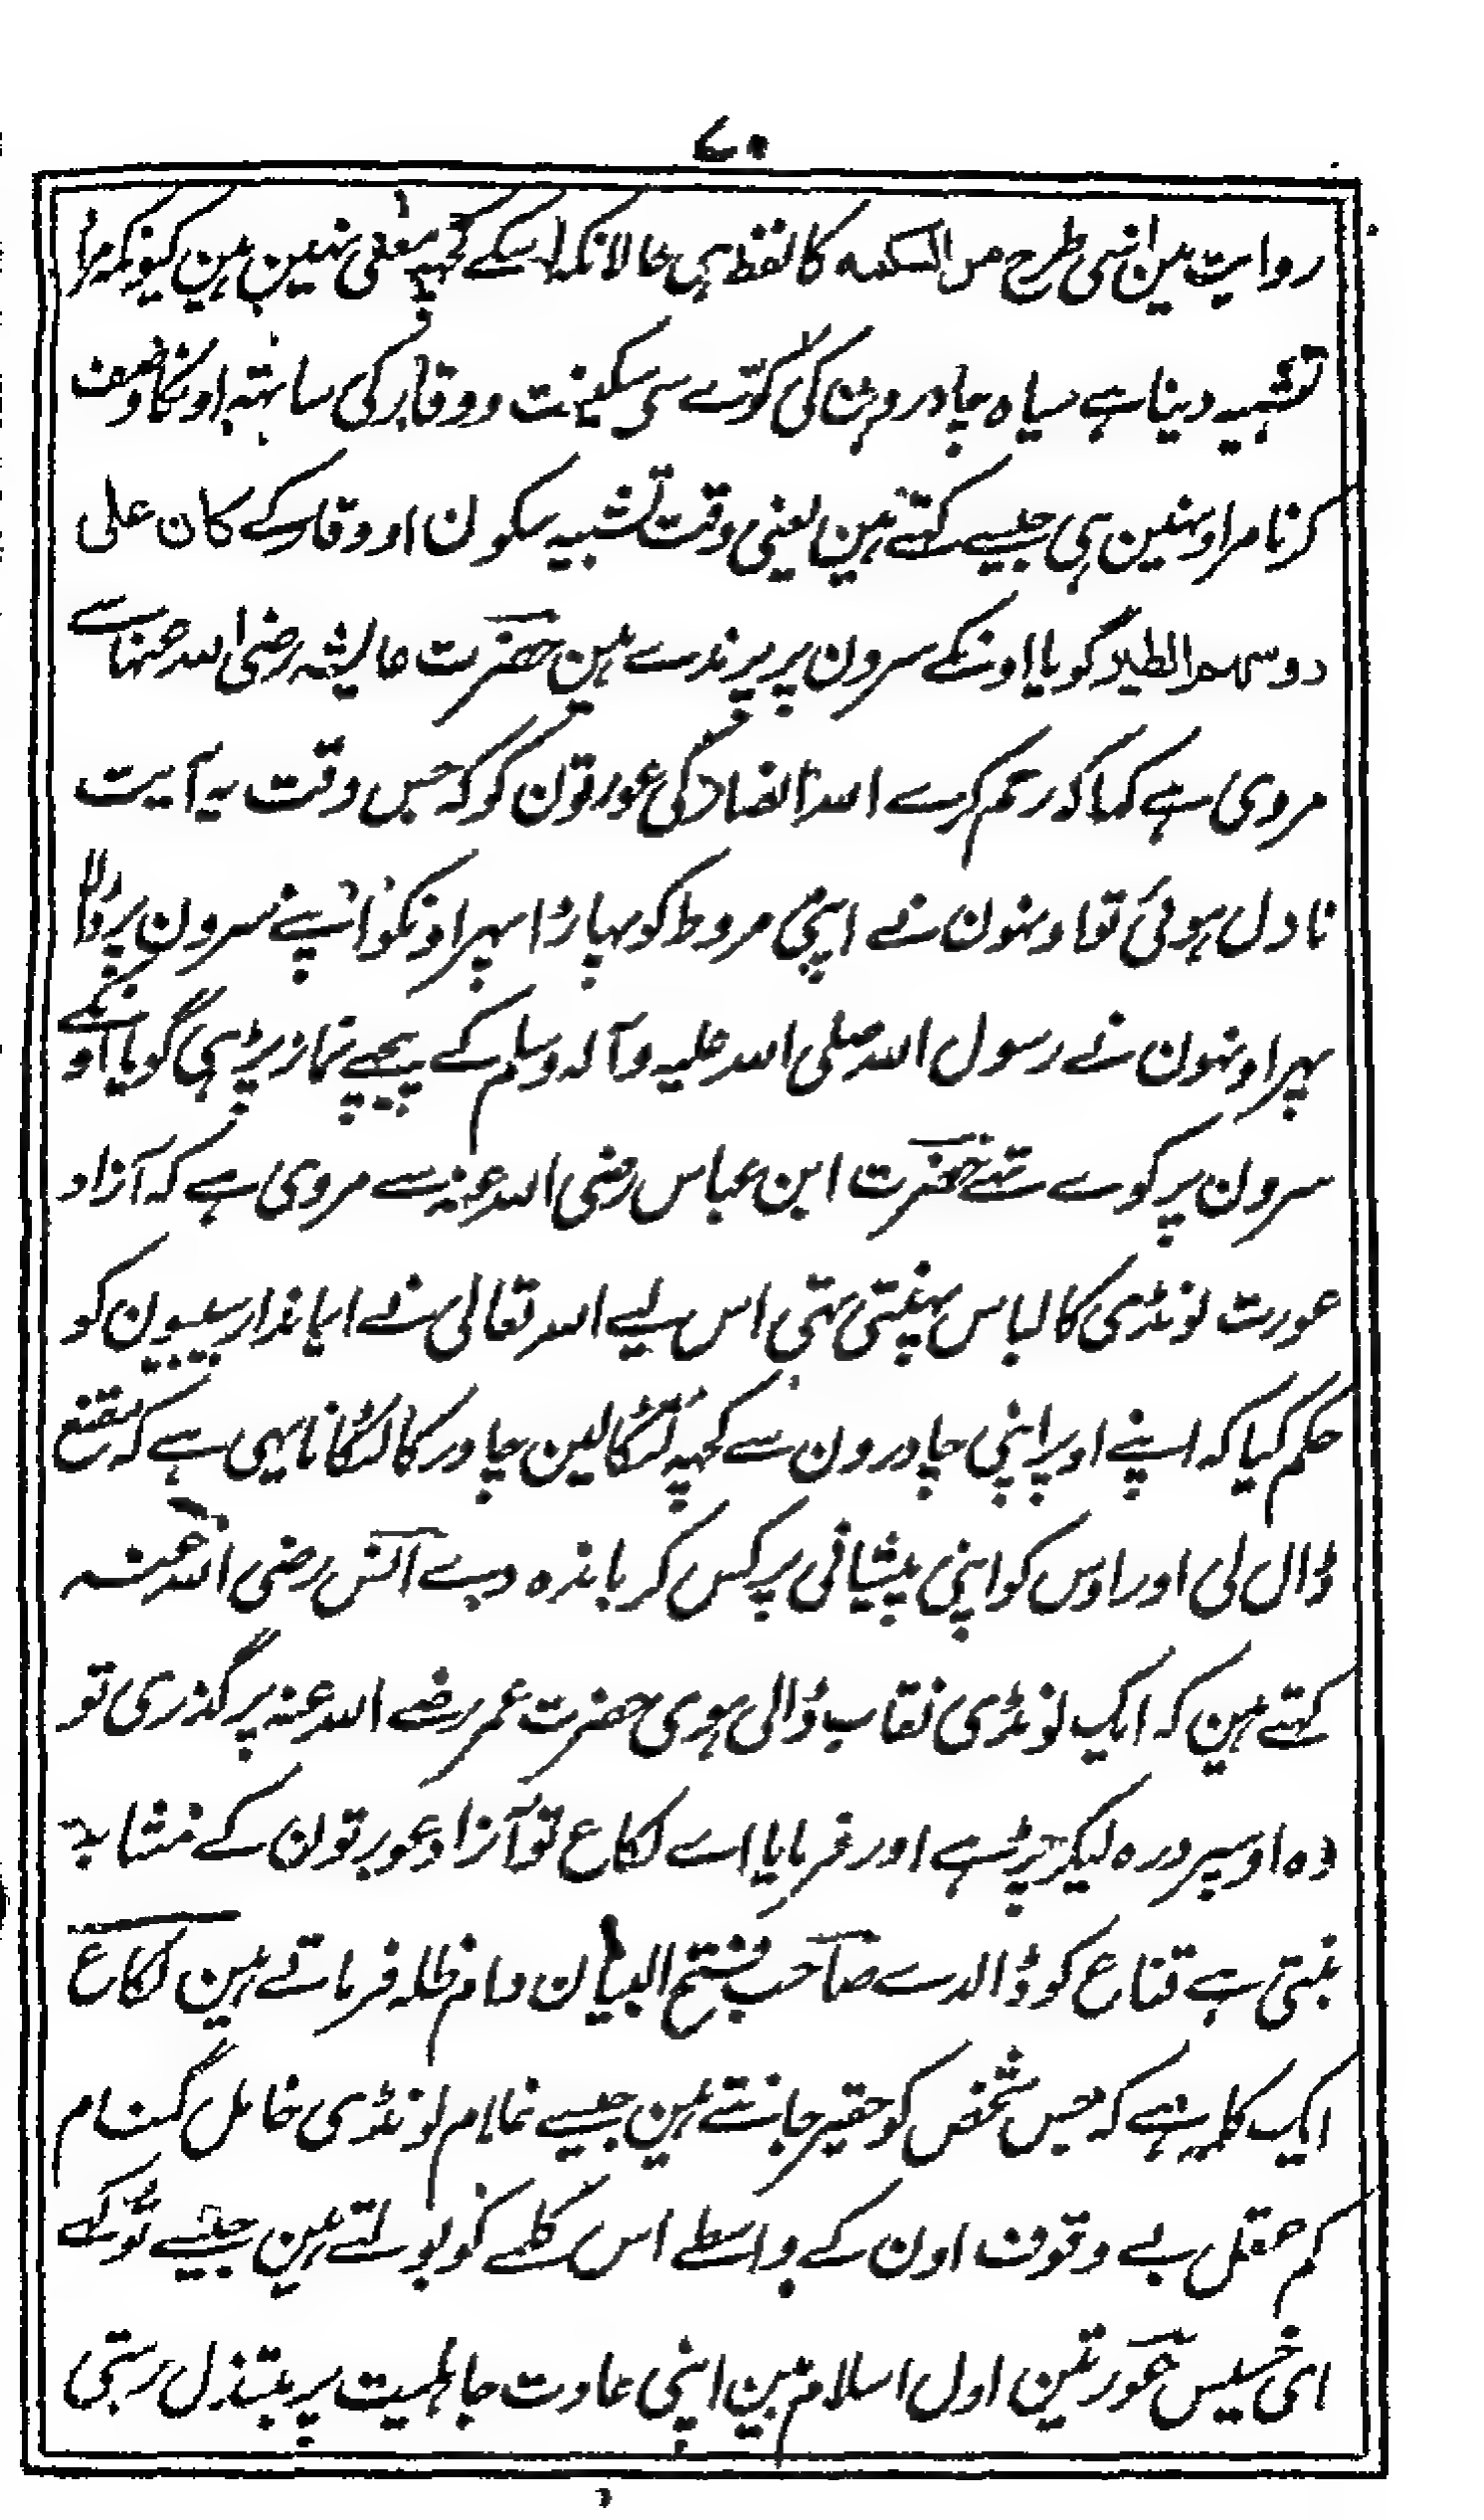 ۷۰
روایت مین اسی طرح من السکینہ کا لفظ ہی حالانکہ اسکے کچھہ معنی نہین ہین کیونکہ مراد
تشبیہ دینا ہے سیاہ چادرون کی کوّے سی سکینت و وقار کی ساتہہ اونکا وصف
کرنا مراد نہین ہی جیسے کہتے ہین یعنی وقت تشبیہ سکون او وقار کے کان علی
روسہم الطیر گویا اونکے سرون پر پرندے ہین حضرت عایشہ رضی اللہ عنہا سے
مروی ہے کہا کہ رحم کرے اللہ انصار کی عورتون کو کہ جس وقت یہ آیت
نازل ہوئی تو اونہون نے اپنی مروط کو پہاڑا پہر اونکو اپنے سرون پر ڈالا
پہر اونہون نے رسول اللہ صلی اللہ علیہ وآلہ وسلم کے پیچھے نماز پڑہی گویا اونکے
سرون پر کوے تہے حضرت ابن عباس رضی اللہ عنہ سے مروی ہے کہ آزاد
عورت لونڈی کا لباس پہنتی تہی اس لیے اللہ تعالی نے ایماندار بیبیون کو
حکم کیا کہ اپنے اوپر اپنی چادرون سے کچہہ لٹکالین چادر کا لٹکانا یہی ہے کہ مقنع
ڈال لی اور اوس کو اپنی پیشانی پر کس کر باندہ دے انس رضی اللہ عنہ
کہتے ہین کہ ایک لونڈی نقاب ڈالی ہوی حضرت عمر رضے اللہ عنہ پر گذری تو
وہ اوسپر درہ لیکر چڑہے اور فرمایا اے لکاع تو آزاد عورتون کے مشابہ
بنتی ہے قناع کو ڈالدے صاحب فتح البیان دام ظلہ فرماتے ہین لکاع
ایک کلمہ ہے کہ جس شخص کو حقیر جانتے ہین جیسے غلام لونڈی خامل گمنام
کم عقل بے وقوف اون کے واسطے اس کلمے کو بولتے ہین جیسے تو کہے
ای خسیس عورتین اول اسلام مین اپنی عادت جاہلیت پر مبتذل رہتی